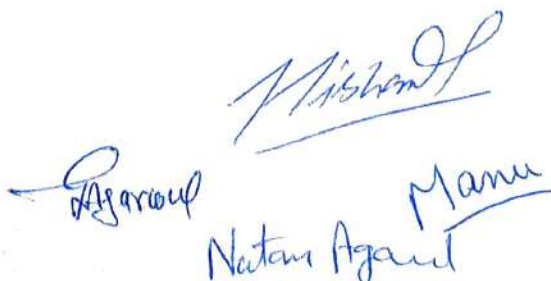 Nishant
Agarwal
Manu
Nutan Agarwal